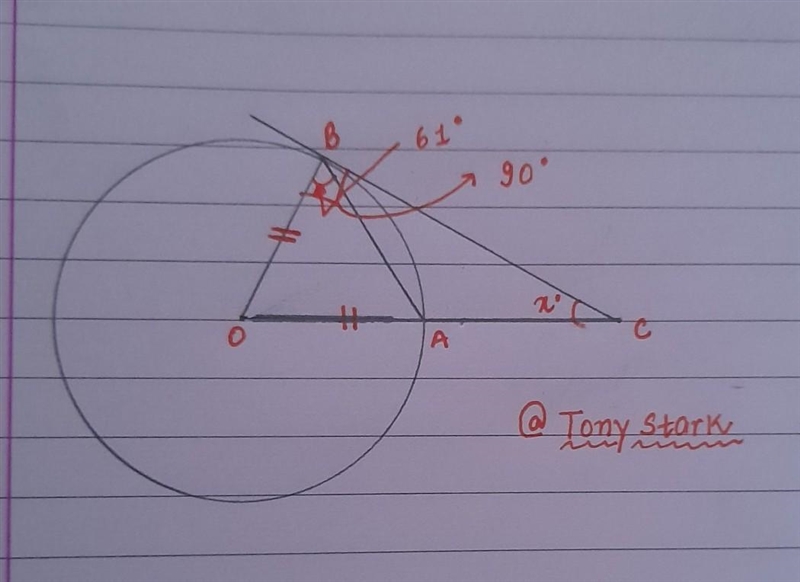 B
61°
90°
x°
O
A
C
@ Tony Stark